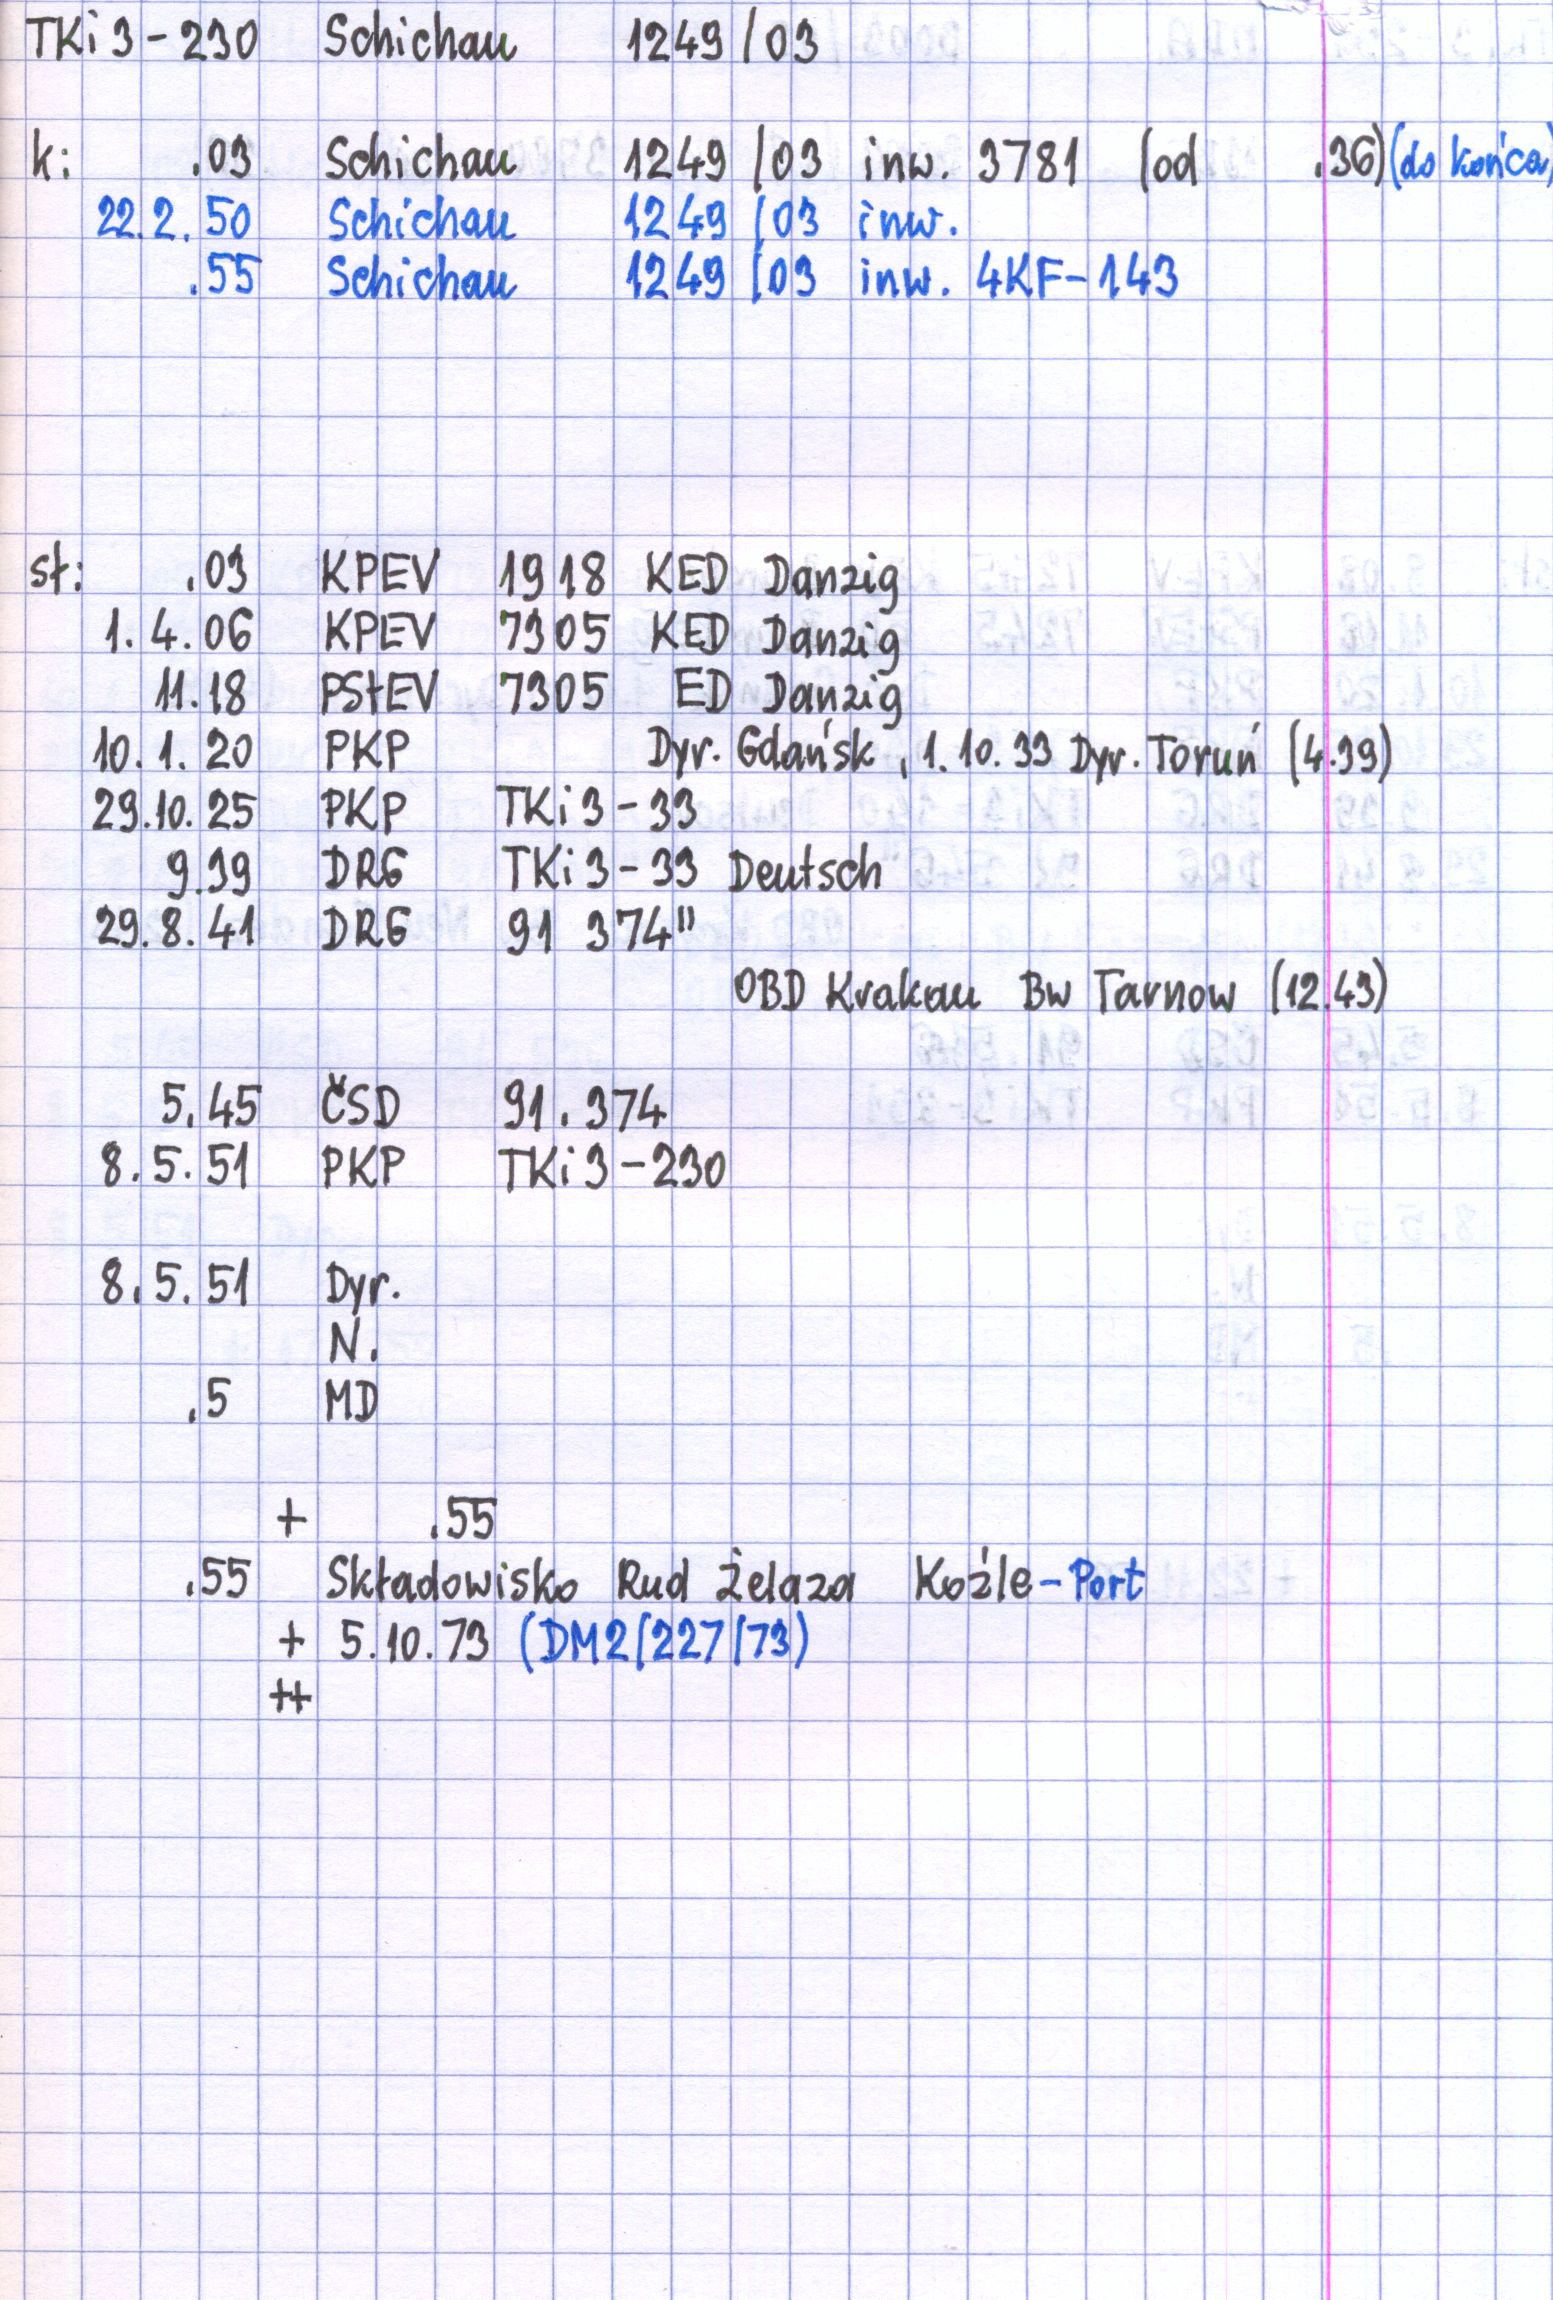 TKi 3 - 230 Schichau 1249 / 03
k: .03 Schichau 1249 / 03 inw. 3781 (od .36) (do końca)
22.2.50 Schichau 1249 / 03 inw.
.55 Schichau 1249 / 03 inw. 4KF-143
st: .03 KPEV 1918 KED Danzig
1.4.06 KPEV 7305 KED Danzig
11.18 PStEV 7305 ED Danzig
10.1.20 PKP Dyr. Gdańsk, 1.10.33 Dyr. Toruń (4.39)
29.10.25 PKP TKi 3 - 33
9.39 DRG TKi 3 - 33 Deutsch
29.8.41 DRG 91 374"
OBD Krakau Bw Tarnow (12.43)
5.45 ČSD 91.374
8.5.51 PKP TKi 3 - 230
8.5.51 Dyr.
N.
.5 MD
+ .55
.55 Składowisko Rud Żelaza Koźle-Port
+ 5.10.73 (DM2/227/73)
++